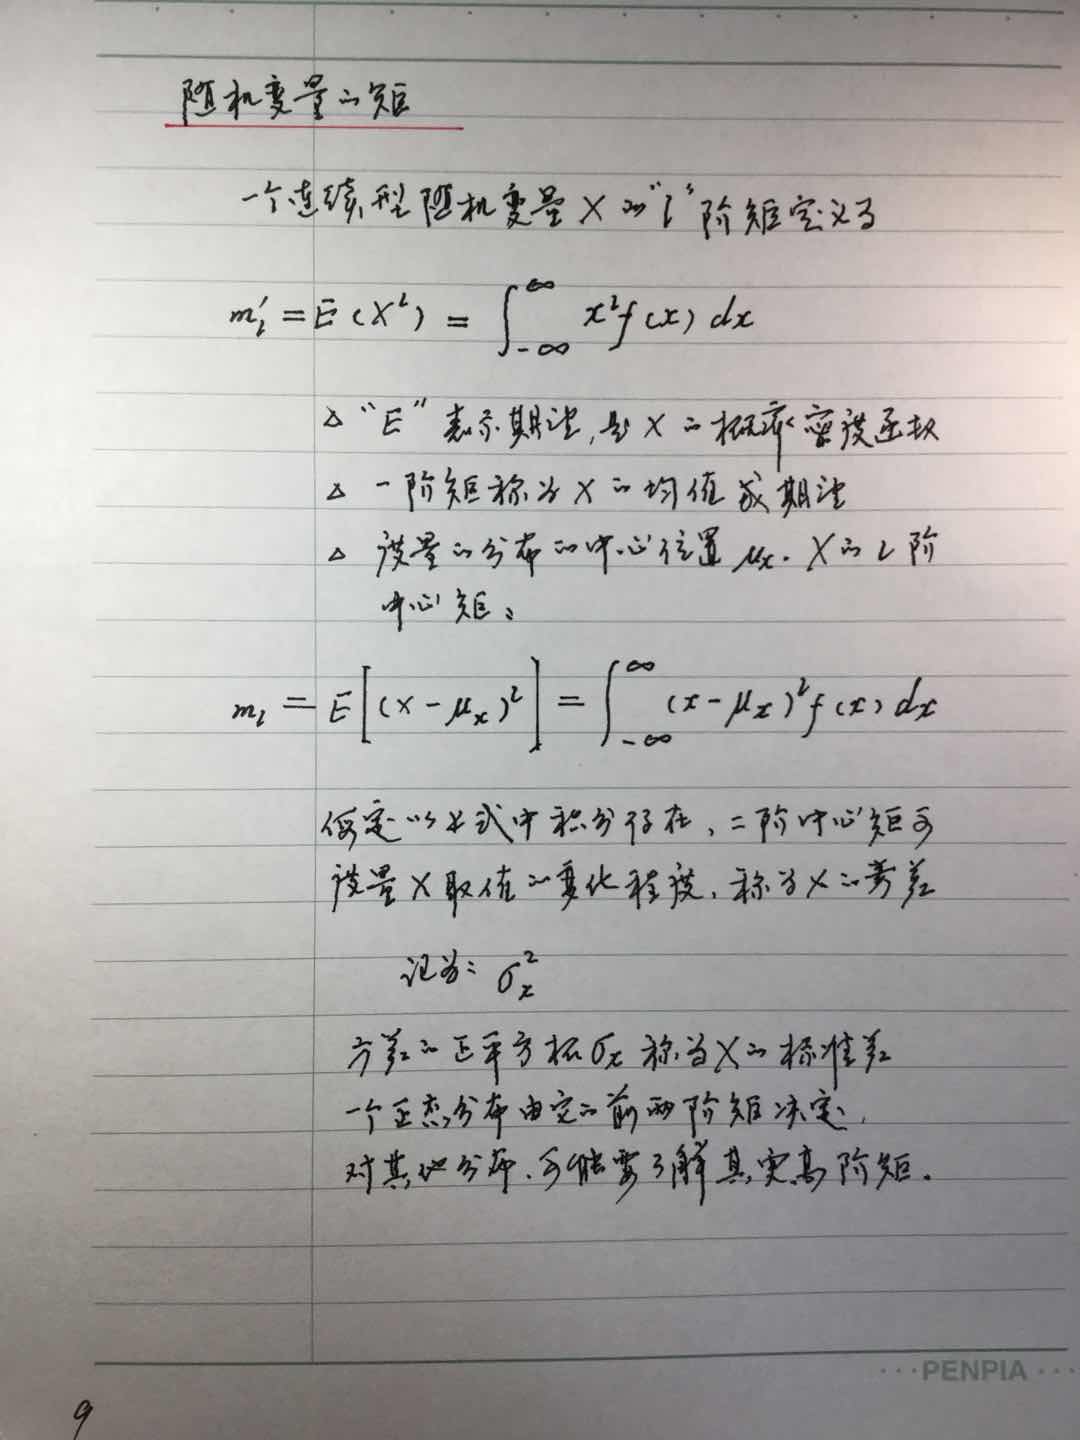 随机变量的矩
一个连续型随机变量 X 的"l"阶矩定义为
m'ₗ = E(Xˡ) = ∫_{-∞}^{∞} xˡf(x) dx
△ "E" 表示期望, 是 X 的概率密度函数
△ 一阶矩称为 X 的均值或期望
△ 度量的分布的中心位置 μₓ. X 的 l 阶
中心矩:
mₗ = E[(X-μₓ)ˡ] = ∫_{-∞}^{∞} (x-μₓ)ˡf(x) dx
假定以上式中积分存在, 二阶中心矩可
度量 X 取值的变化程度, 称为 X 的方差
记为: σₓ²
方差的正平方根 σₓ 称为 X 的标准差
一个正态分布由它的前两阶矩决定,
对其他分布, 可能要了解其更高阶矩.
PENPIA
9